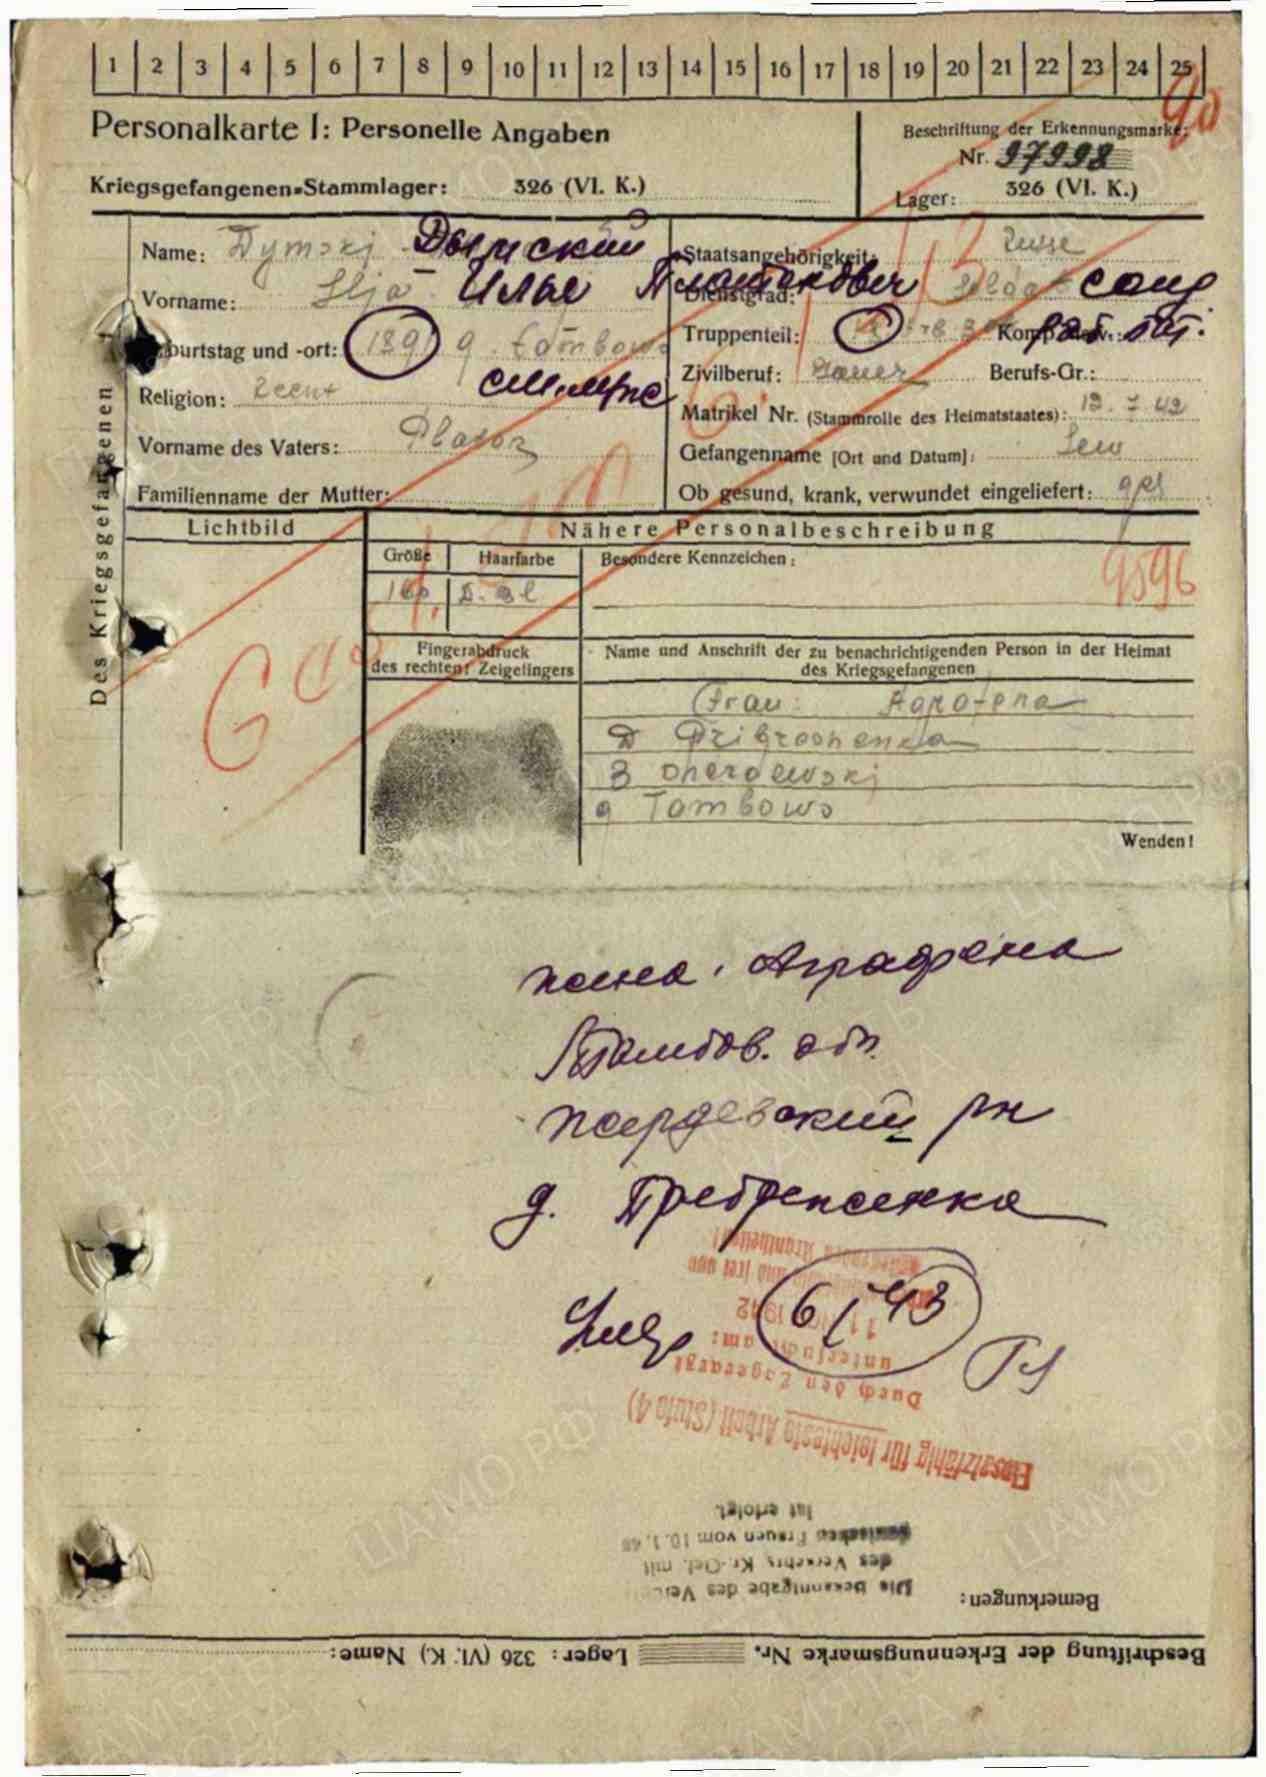 1 2 3 4 5 6 7 8 9 10 11 12 13 14 15 16 17 18 19 20 21 22 23 24 25
90
Personalkarte I: Personelle Angaben
Beschriftung der Erkennungsmarke:
Nr. 97998
Kriegsgefangenen-Stammlager: 326 (VI. K.)
Lager: 326 (VI. K.)
Des Kriegsgefangenen
Name: Dymski Дымский
Staatsangehörigkeit: Russe
Vorname: Ilja Илье Платонович
Dienstgrad: Soldat солд
Geburtstag und -ort: 1891 g. Tambows
Truppenteil: Komp. usw.: раб. бат.
Zivilberuf: Bauer Berufs-Gr.:
Religion:
Matrikel Nr. (Stammrolle des Heimatstaates): 12. 7. 42
Vorname des Vaters: Platon
Gefangenname [Ort und Datum]: Sew
Familienname der Mutter:
Ob gesund, krank, verwundet eingeliefert: ges
Lichtbild
Nähere Personalbeschreibung
Größe Haarfarbe
Besondere Kennzeichen:
160 D. Bl
9596
Fingerabdruck
des rechten! Zeigefingers
Name und Anschrift der zu benachrichtigenden Person in der Heimat
des Kriegsgefangenen
Frau: Agrofena
D Pribroshenka
Tambows
Wenden!
жена. Аграфена
Тамбов. обл.
жердевский рн
д. Прибреженка
6/I 43
Einsatzfähig für leichteste Arbeit (Stufe 4)
Durch den Lagerarzt
untersucht am:
11 1942
und frei von
Krankheiten!
Bemerkungen:
Die Bekanntgabe des
des Verkehrs Kr.-Gef. mit
Frauen vom 10.1.
hat erfolgt.
Beschriftung der Erkennungsmarke Nr. Lager: 326 (VI. K.) Name:
ЦАМО РФ
ПАМЯТЬ
НАРОДА